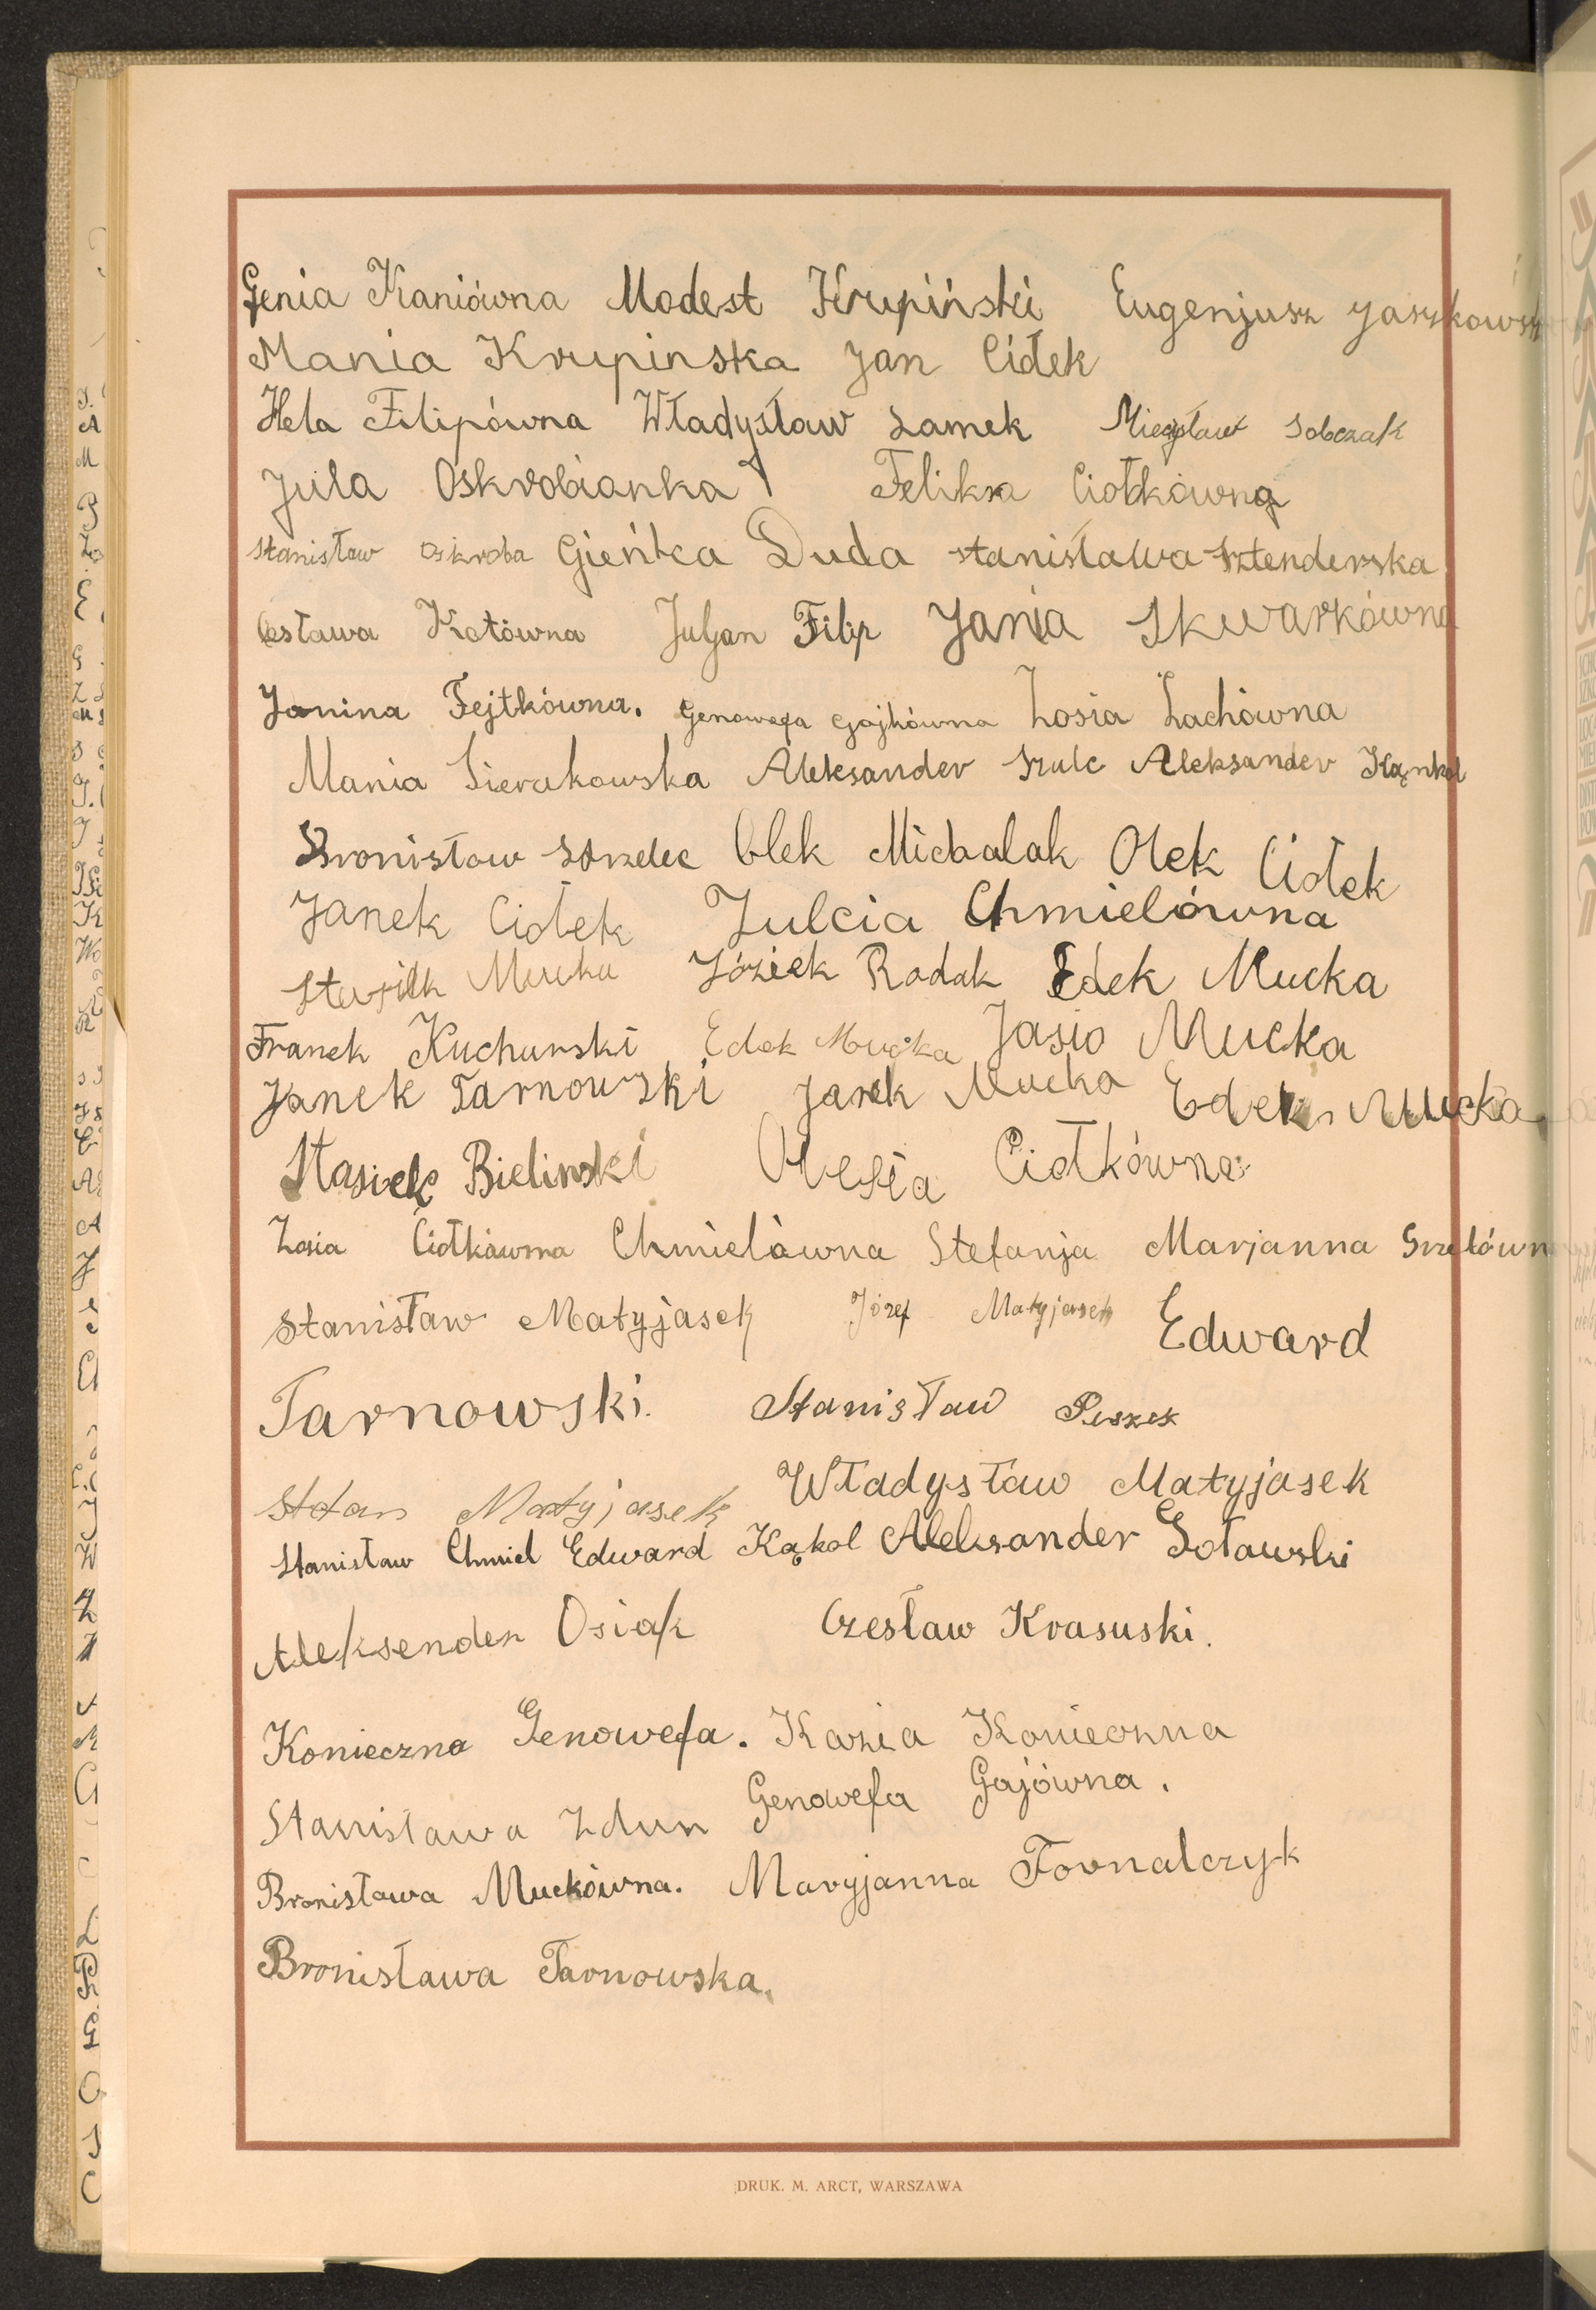 Genia Kaniówna Modest Krupiński Eugenjusz Jaszkowsk
Mania Krupinska Jan Ciołek
Hela Filipówna Władysław Zamek Mieczysław Sobczak
Jula Oskrobianka Feliksa Ciołkówna
Stanisław Oskroba Gieńka Duda Stanisława Sztenderska
Cesława Kotówna Juljan Filip Jania Skwarkówna
Janina Fejtkówna. Genowefa Gajkówna Zosia Lachówna
Mania Sierakowska Aleksander Szulc Aleksander Kąnkol
Bronisław Strzelec Olek Michalak Olek Ciołek
Janek Ciołek Julcia Chmielówna
Mucka Józiek Rodak Edek Mucka
Franek Kucharski Edek Mucka Jasio Mucka
Janek Tarnowski Janek Mucka Edek Mucka
Stasiek Bielinski Olesia Ciołkówna
Zosia Ciołkówna Chmielówna Stefanja Marjanna
Stanisław Matyjasek Józef Matyjasek Edward
Tarnowski. Stanisław Peszek
Matyjasek Władysław Matyjasek
Stanisław Chmiel Edward Kąkol Aleksander Goławski
Aleksender Osiak Czesław Krasuski.
Konieczna Genowefa. Kazia Konieczna
Stanisława Zdun Genowefa Gajówna.
Bronisława Muckówna. Maryjanna Fornalczyk
Bronisława Tarnowska.
DRUK. M. ARCT, WARSZAWA